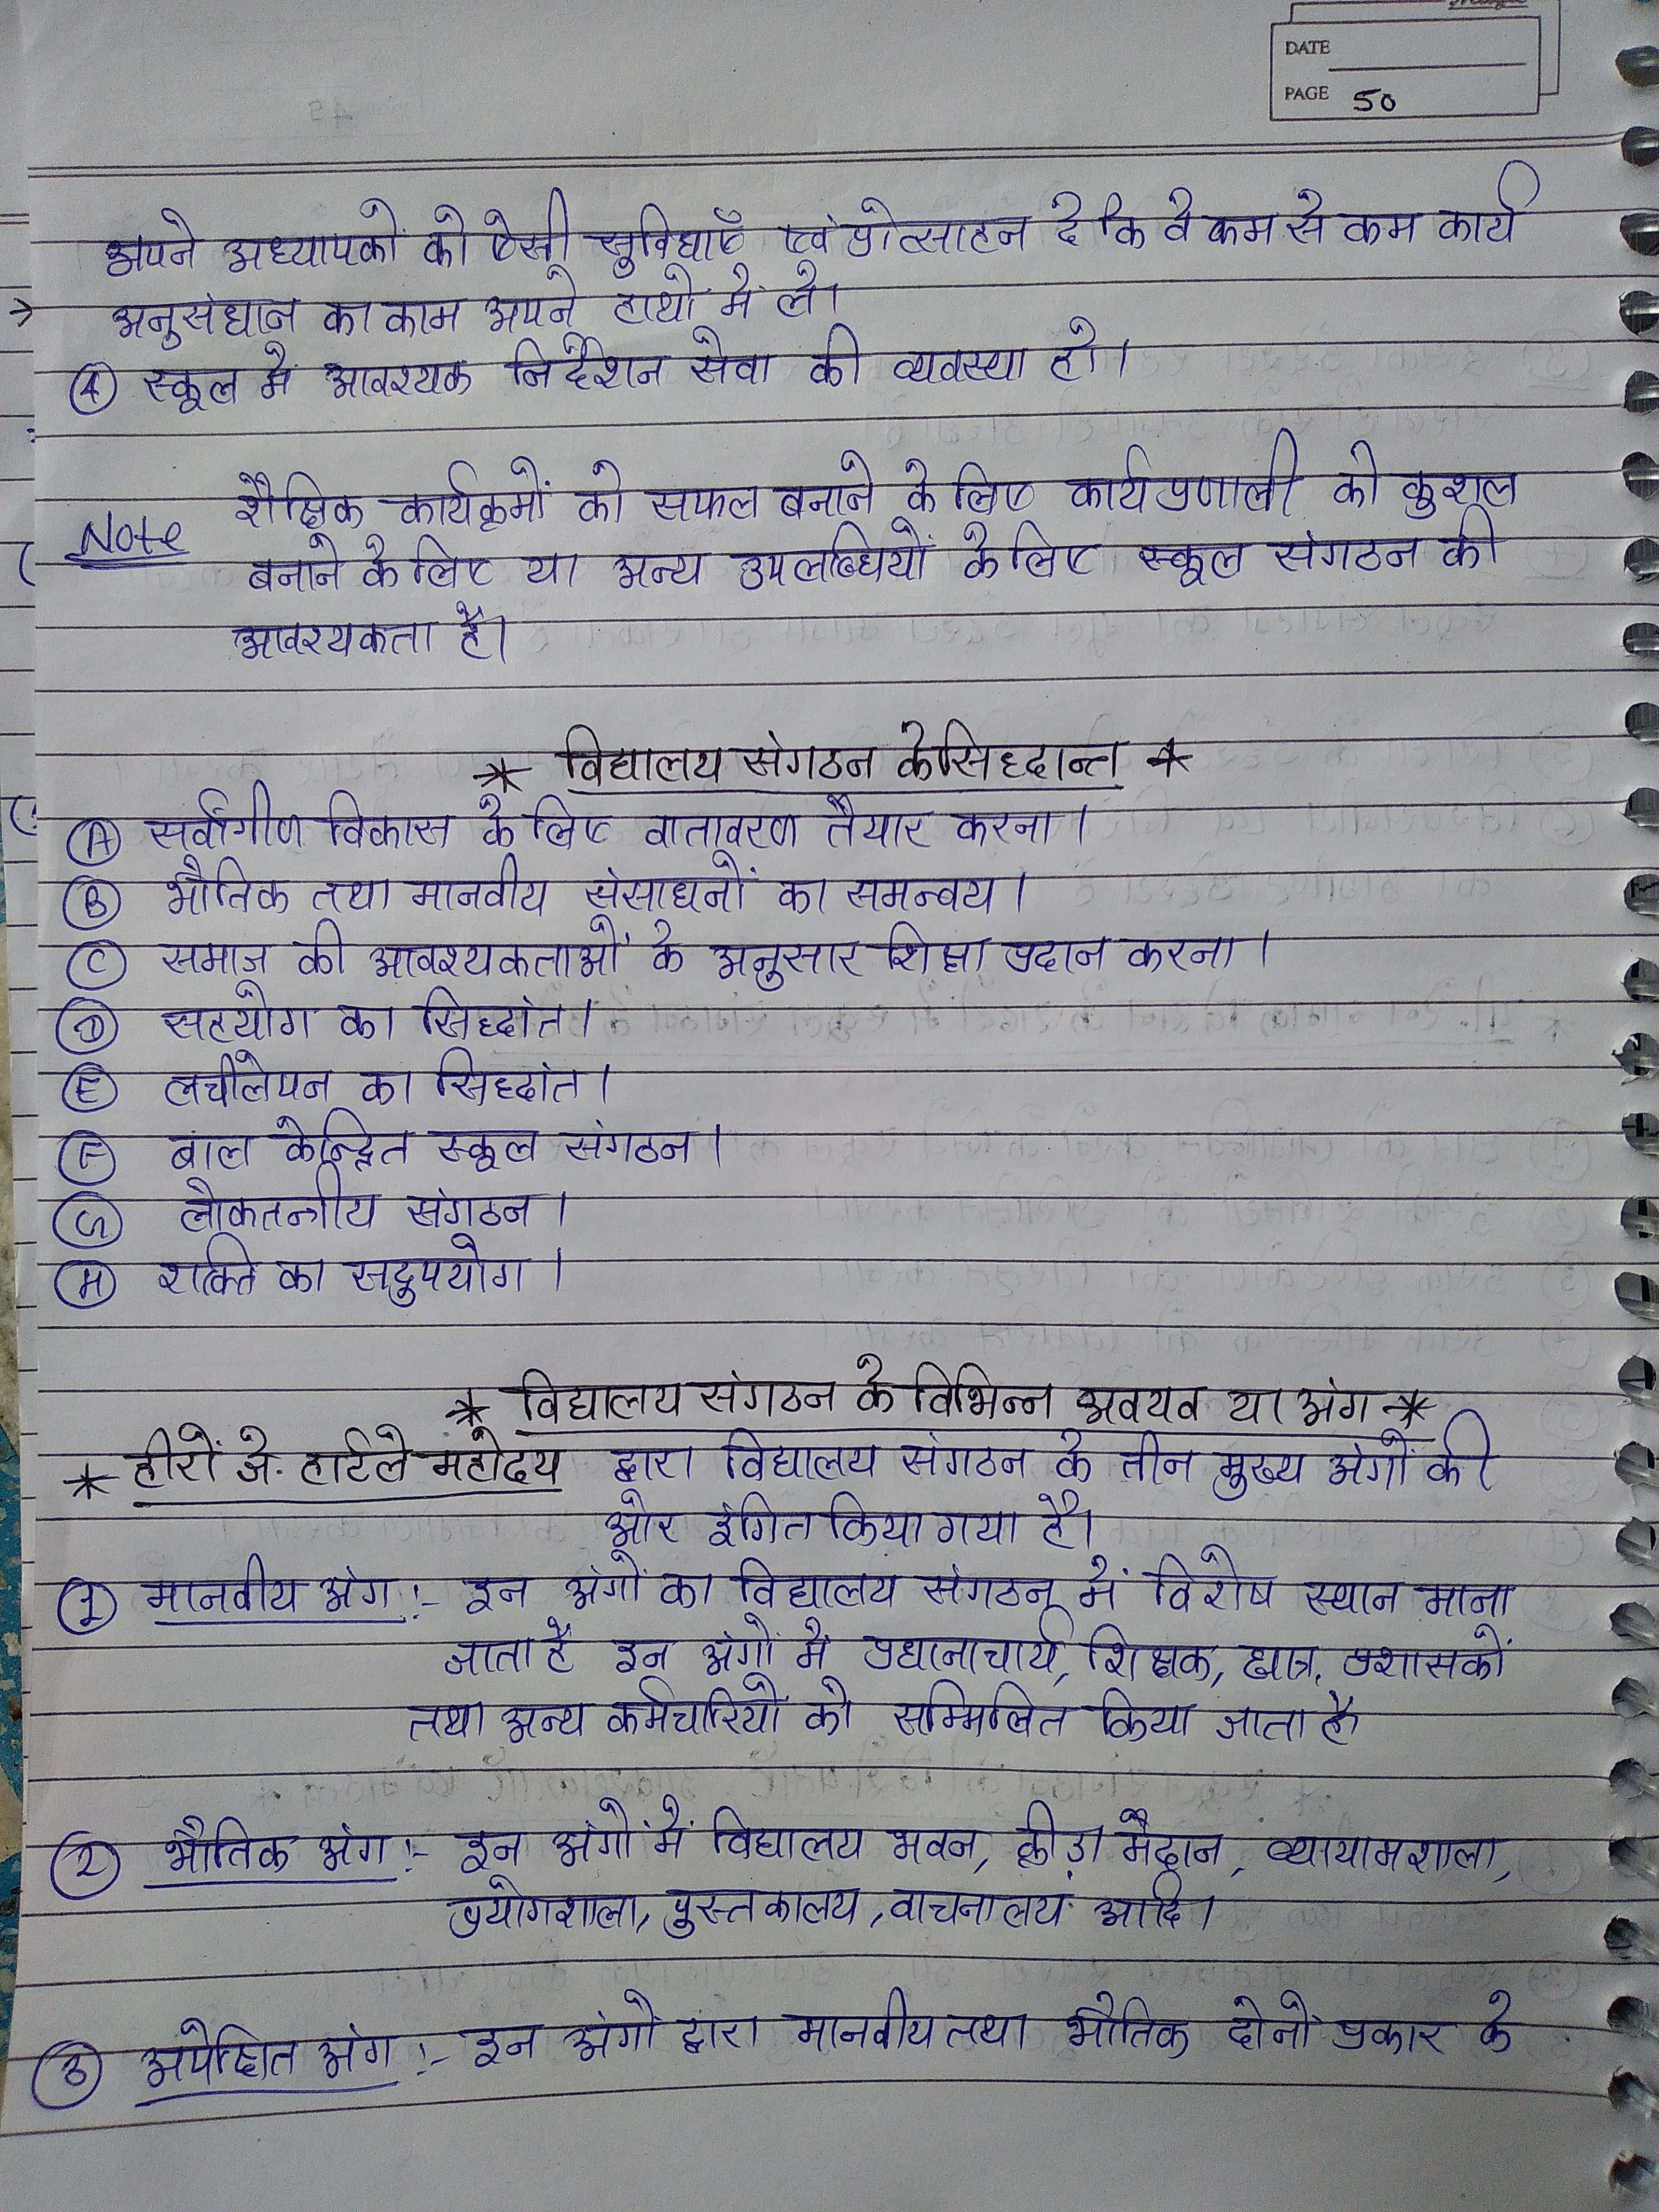 DATE
PAGE 50
अपने अध्यापकों को ऐसी सुविधाएँ एवं प्रोत्साहन दे कि वे कम से कम कार्य
अनुसंधान का काम अपने हाथों में ले।
④ स्कूल में आवश्यक निर्देशन सेवा की व्यवस्था हो।
Note शैक्षिक कार्यक्रमों को सफल बनाने के लिए कार्यप्रणाली को कुशल
बनाने के लिए या अन्य उपलब्धियों के लिए स्कूल संगठन की
आवश्यकता है।
* विद्यालय संगठन के सिद्धान्त *
Ⓐ सर्वांगीण विकास के लिए वातावरण तैयार करना।
Ⓑ भौतिक तथा मानवीय संसाधनों का समन्वय।
Ⓒ समाज की आवश्यकताओं के अनुसार शिक्षा प्रदान करना।
Ⓓ सहयोग का सिद्धांत।
Ⓔ लचीलेपन का सिद्धांत।
Ⓕ बाल केन्द्रित स्कूल संगठन।
Ⓖ लोकतन्त्रीय संगठन।
Ⓗ शक्ति का सदुपयोग।
* विद्यालय संगठन के विभिन्न अवयव या अंग *
* हीरों जे. हार्टले महोदय द्वारा विद्यालय संगठन के तीन मुख्य अंगों की
ओर इंगित किया गया है।
① मानवीय अंग :- इन अंगों का विद्यालय संगठन में विशेष स्थान माना
जाता है इन अंगों में प्रधानाचार्य, शिक्षक, छात्र, प्रशासकों
तथा अन्य कर्मचारियों को सम्मिलित किया जाता है
② भौतिक अंग :- इन अंगों में विद्यालय भवन, क्रीड़ा मैदान, व्यायामशाला,
प्रयोगशाला, पुस्तकालय, वाचनालय आदि।
③ अपेक्षित अंग :- इन अंगों द्वारा मानवीय तथा भौतिक दोनों प्रकार के